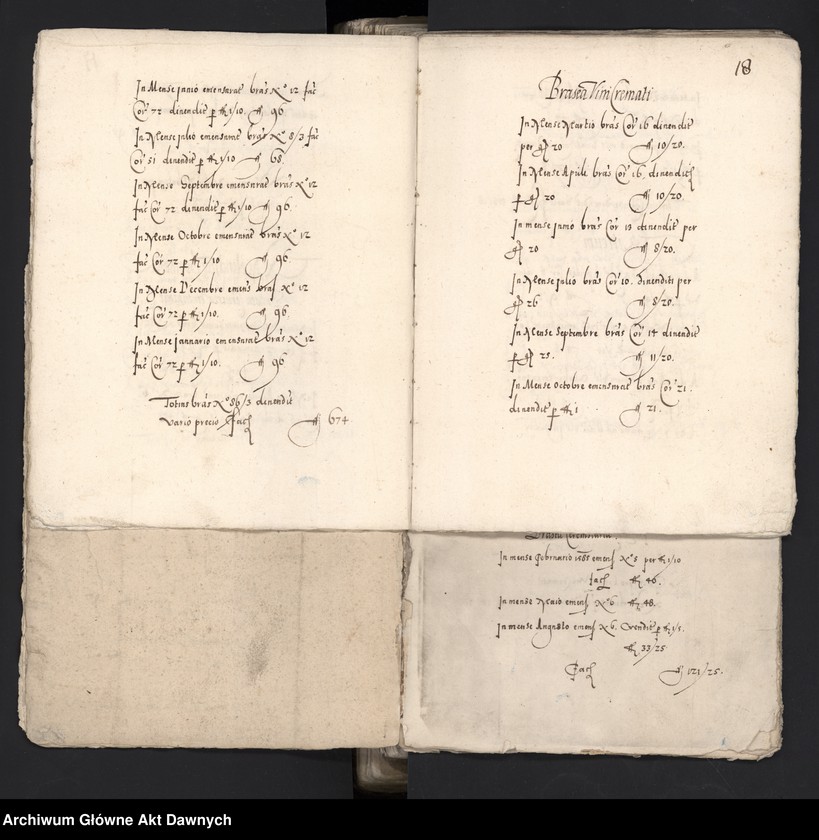 In Mense junio emensurat bras Nº 12 fac
Cor 72 divendit p fl 1/10 fl 96
In Mense julio emensurat bras Nº 8/3 fac
Cor 51 divendit p fl 1/10 fl 68.
In Mense Septembre emensurat bras Nº 12
fac Cor 72 divendit p fl 1/10 fl 96
In Mense Octobre emensurat bras Nº 12
fac Cor 72 p fl 1/10 fl 96.
In Mense Decembre emens bras Nº 12
fac Cor 72 p fl 1/10. fl 96
In Mense Januario emensurat bras Nº 12
fac Cor 72 p fl 1/10. fl 96
Totius bras Nº 86/3 divendit
vario precio fac fl 674
18
Brasea Vini Cremati
In Mense Martio bras Cor 16 divendit
per gr 20 fl 10/20.
In Mense Aprili bras Cor 16 divendit
p gr 20 fl 10/20
In mense junio bras Cor 13 divendit per
gr 20 fl 8/20.
In Mense julio bras Cor 10. divendit per
gr 26 fl 8/20.
In Mense Septembre bras Cor 14 divendit
p gr 25. fl 11/20.
In Mense Octobre emensurat bras Cor 21.
divendit p fl 1 fl 21.
In mense Februario 1585 emens Nº 5 per fl 1/10
fac fl 40.
In mense Maio emens Nº 6 fl 48.
In mense Augusto emens Nº 6. vendit p fl 1/5.
fl 33/25
Fac fl 121/25.
Archiwum Główne Akt Dawnych